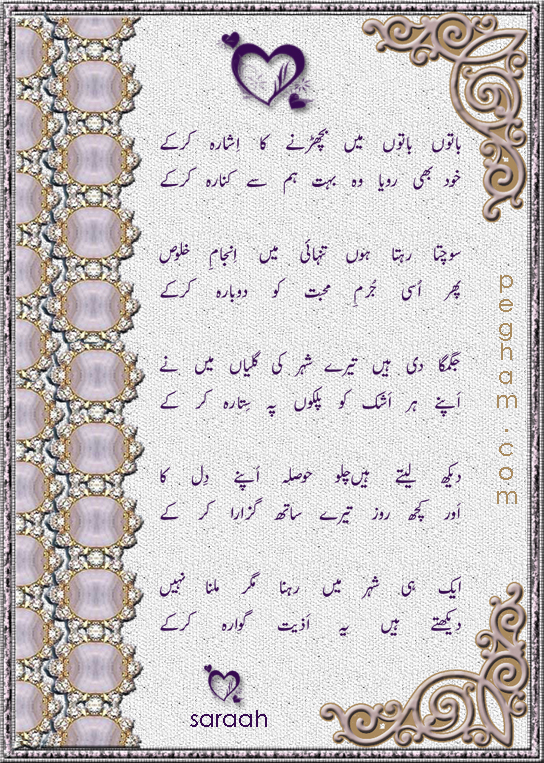 باتوں باتوں میں بچھڑنے کا اِشارہ کرکے
خود بھی رویا وہ بہت ہم سے کنارہ کرکے
سوچتا رہتا ہوں تنہائی میں اِنجامِ خلوص
پھر اُسی جُرمِ محبت کو دوبارہ کرکے
جگمگا دی ہیں تیرے شہر کی گلیاں میں نے
اَپنے ہر اَشک کو پلکوں پہ سِتارہ کر کے
دیکھ لیتے ہیں چلو حوصلہ اَپنے دِل کا
اَور کچھ روز تیرے ساتھ گزارا کر کے
ایک ہی شہر میں رہنا مگر ملنا نہیں
دیکھتے ہیں یہ اَذیت گوارہ کرکے
saraah
pegham.com